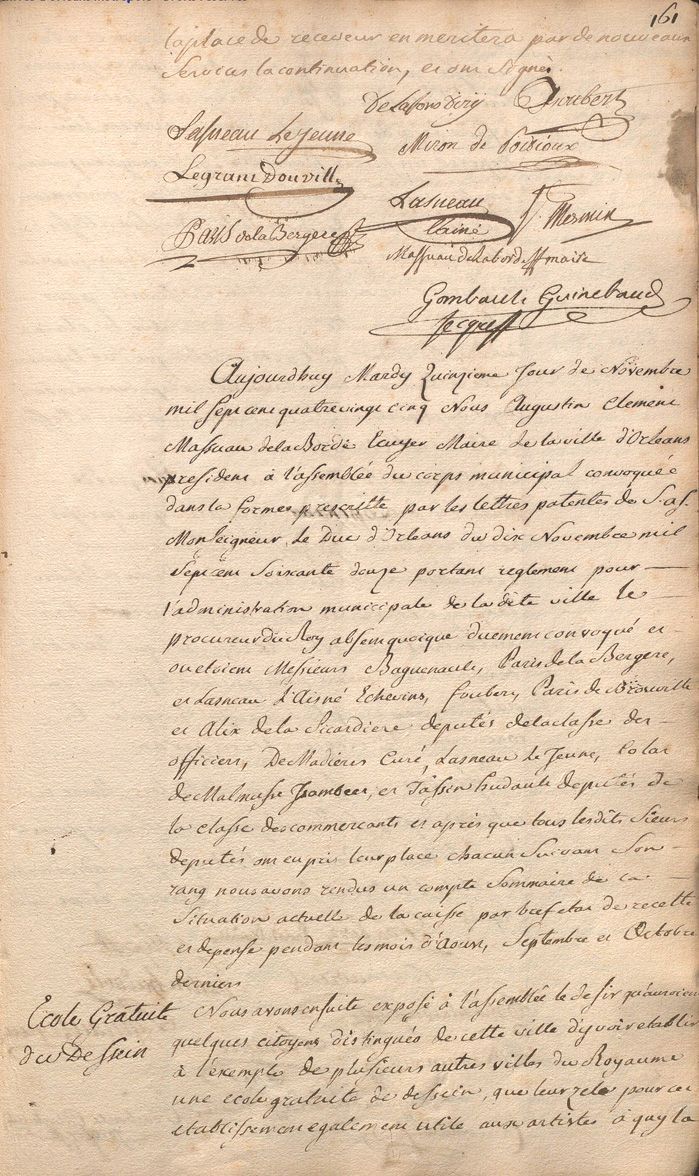 161
la place de receveur en meritera par de nouveaux
Services la continuation, et ont Signé.
Delafons d'ivy Joubert
Lasneau Le Jeune
Miron de Poisioux
Legrand Douville
Lasneau
l'ainé
J. Mesmin
Paris de la Bergere
Massuau de la borde maire
Gombault Guinebaud
Jacques
Aujourdhuy Mardy Quinzieme Jour de Novembre
mil Sept cent quatre vingt cinq Nous Augustin Clement
Massuau de la Borde Ecuyer Maire de la ville d'Orleans
president à l'assemblée du corps municipal convoquée
dans la forme prescritte par les lettres patentes de S. a. S.
Monseigneur Le Duc d'Orleans du dix Novembre mil
Sept cent Soixante douze portant reglement pour
l'administration municipale de la dite ville le
procureur du Roy absent quoique duement convoqué et
ou etoient Messieurs Baguenault, Paris de la Bergere,
et Lasneau L'Aisné Echevins, foubert, Paris de
et Alix de la Sicardiere deputés de la classe des
officiers, De Madieres Curé, Lasneau le Jeune, Colas
de Malmusse Jsambert, et Tassin hudault deputés de
la classe des commercants et après que tous les dits Sieurs
deputés ont eu pris leur place chacun Suivant Son
rang nous avons rendus un compte Sommaire de la
Situation actuelle de la caisse par bref etat de recette
et depense pendant les mois d'Aoust, Septembre et Octobre
derniers
Ecole Gratuite
du Dessein
Nous avons ensuite exposé à l'assemblée le desir qu'auroient
quelques citoyens distingués de cette ville d'y voir etablir
à l'exemple de plusieurs autres villes du Royaume
une ecole gratuite de dessein, que leur zele pour cet
etablissement egalement utile aux artistes à quy la